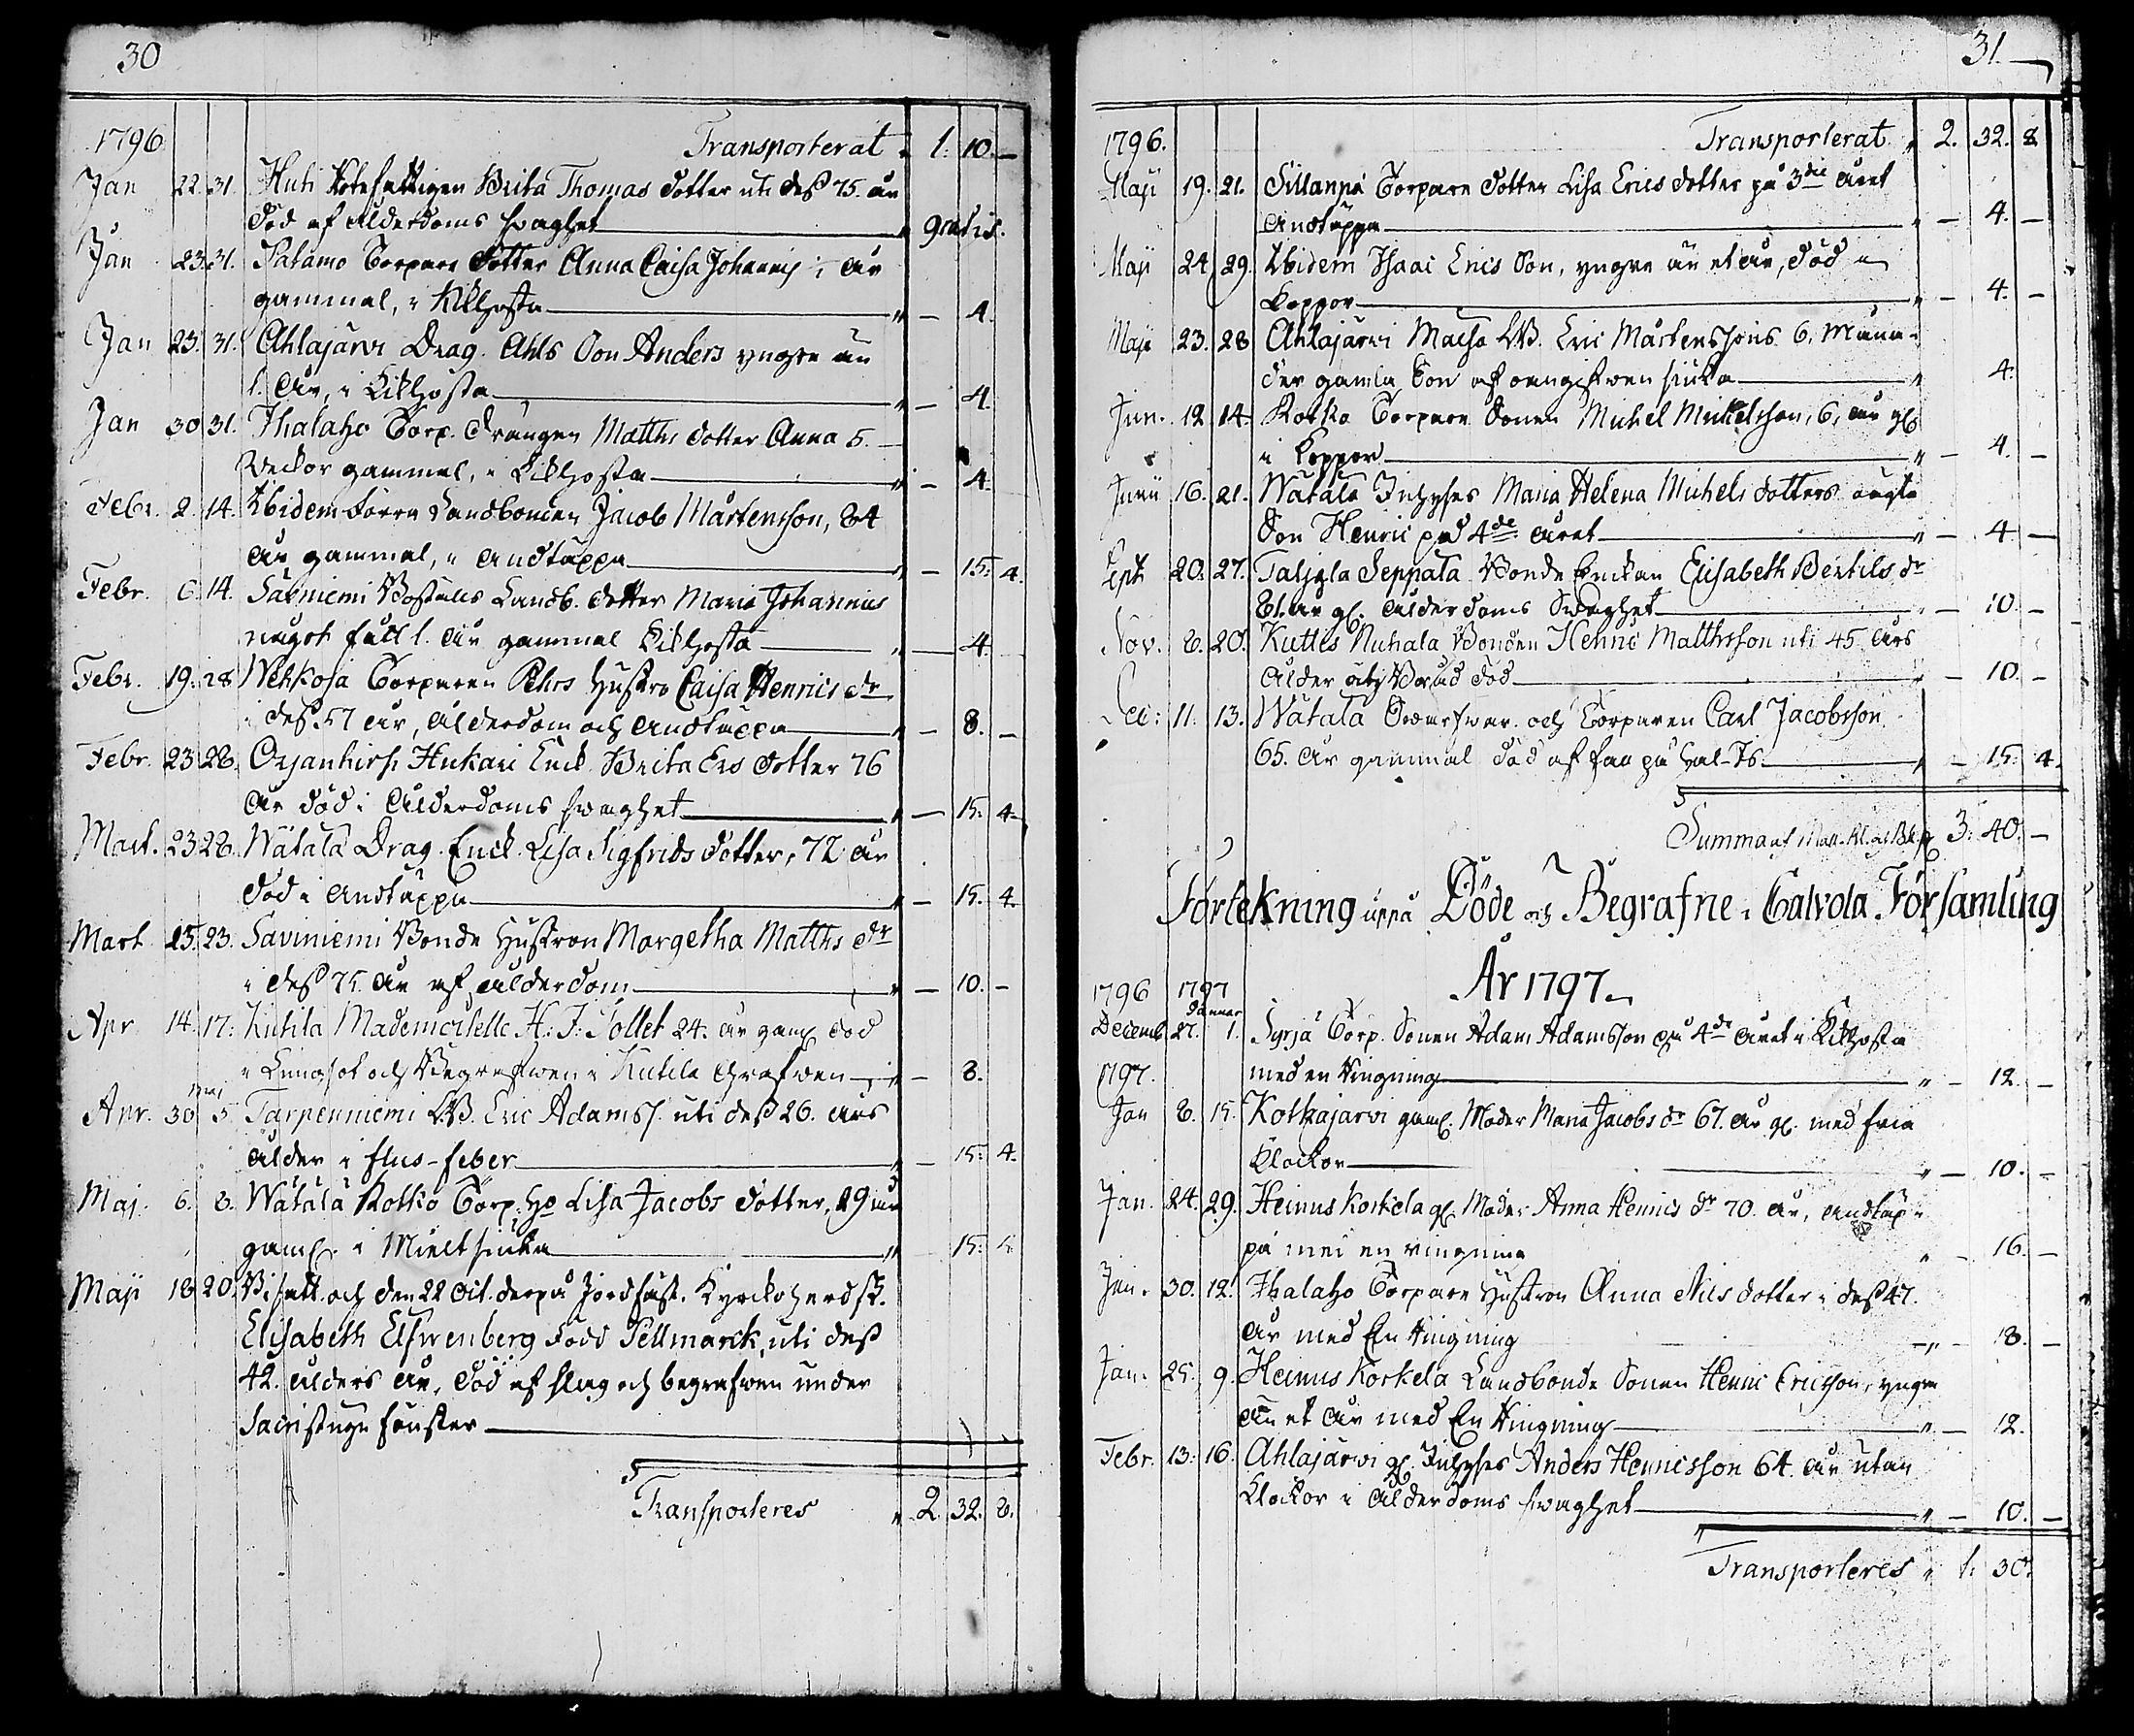 30
1796 Transporterat " 1. 10. —
Jan 22. 31. Huti Rotefattigen Brita Thomas dotter uti dess 75. år
död af ålderdoms swaghet " gratis.
Jan 23. 31. Salamo Torpare dotter Anna Caisa Johannis 1 år
gammal, i Kikhosta " — 4.
Jan 23. 31. Ahlajärvi Drag. Ahls Son Anders yngre än
1. år, i Kikhosta " — 4.
Jan 30 31. Ihalaho Torp. drängen Matths dotter Anna 5.
Veckor gammal, i Kikhosta " — 4.
Febr. 2. 14. Ibidem förra Landbonden Jacob Mårtensson, 84
år gammal, i andtäppa " — 15: 4.
Febr. 6. 14. Saviniemi Boställs Landb. dotter Maria Johannis
något full 1. år gammal Kikhosta " — 4.
Febr. 19. 28 Wehkoja Torparen Pehrs hustro Caisa Henrics dr
i dess 57 år, ålderdom och andtäppa " — 8. —
Febr. 23 28. Orjanhirsi Hukari Enck. Brita Ers dotter 76
år död i ålderdoms swaghet " — 15: 4.
Mart. 23 28. Wätälä Drag. Enck. Lisa Sigfrids dotter, 72 år
död i andtäppa " — 15. 4.
Mart 15. 23. Saviniemi Bonde hustron Margetha Matths dr
i dess 75. år af ålderdom " — 10. —
Apr 14. 17. Kutila Mademoiselle H: J: Tollet 24. år gaml. död
i Lungsot och Begrafwen i Kutila Grafwen " — 8.
maj
Apr. 30 5 Tarpenniemi Eric Adamss. uti dess 26. års
ålder i flus-feber " — 15: 4.
Maj. 6. 8. Wätälä Kotko Torp. Lisa Jacobs dotter, 29 år
gaml. i Mieltsiuka " 15: 4.
Maji 18 20. Bisatt och den 22 derpå Jordfäst. Kyrckoherdsk.
Elisabeth Elfwenberg född Pellmarck, uti dess
42. ålders år, död af slag och begrafwen under
Sacristuge fönster
Transporteres " 2. 32. 8.
31.
1796. Transporterat " 2. 32. 8
Maji 19. 21. Sillanpä Torpare dotter Lisa Erics dotter på 3die året
Andtäppa " — 4. —
Maji 24. 29. Ibidem Isaac Erics Son, yngre än et år, död i
Koppor " — 4. —
Maji 23. 28 Ahlajärvi Eric Mårtenssons 6. Måna-
der gamla Son af oangifwen siuka " 4.
Jun. 12 14. Kotko Torpare Sonen Michel Mickelsson, 6, år gl.
i Koppor " — 4. —
Junii 16. 21. Wätälä Inhyses Maria Helena Michels dotters oägta
Son Henric på 4de året " — 4. —
Sept 20. 27. Taljala Seppälä Bonde Enckan Elisabeth Bertils dr
81. år gl. ålderdoms Swaghet " — 10. —
Nov. 8. 20. Kuttis Nuhala Bonden Henric Matthsson uti 45 års
ålder död " — 10. —
11. 13. Wätälä och Torparen Carl Jacobsson
65. år gammal död af — 15: 4.
Summa 3: 40. —
Förtekning uppå Döde och Begrafne i Calvola Församling
År 1797.
1796 1797
Januar
Decemb. 27. 1. Syrjä Torp. Sonen Adam Adamsson på 4de året i Kikhosta
1797. med en Ringning " — 12. —
Jan 8. 15. Kotkajarvi gaml. Moder Maria Jacobs dr 67. år gl. med fria
Klockor " — 10. —
Jan. 24. 29. Heinus Korkela gl. Moder Anna Henrics dr 70. år, andtäp-
pa med en ringning " — 16. —
Jan. 30. 12. Ihalaho Torpare hustron Anna Nils dotter i dess 47.
år med En Ringning " 18. —
Jan. 25. 9. Heinus Korkela Landbonde Sonen Henric Ericsson, yngre
än et år med En Ringning " — 12.
Febr. 13. 16. Ahlajärvi gl. Inhyses Anders Henricsson 64. år utan
Klockor i ålderdoms swaghet " — 10. —
Transporteres " 1. 30.